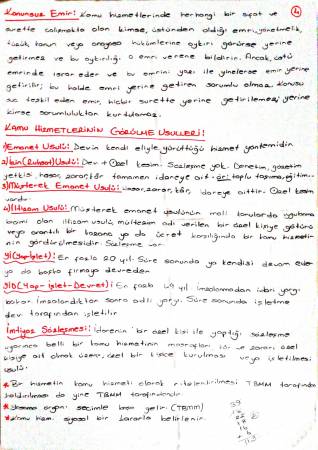 Kanunsuz Emir: Kamu hizmetlerinde herhangi bir sıfat ve (4)
surette çalışmakta olan kimse, üstünden aldığı emri, yönetmelik,
tüzük, kanun veya anayasa hükümlerine aykırı görürse yerine
getirmez ve bu aykırılığı o emri verene bildirir. Ancak, üstü
emrinde ısrar eder ve bu emrini yazı ile yinelerse emir yerine
getirilir; bu halde emri yerine getiren sorumlu olmaz. Konusu
suç teşkil eden emir, hiçbir surette yerine getirilemez; yerine
kimse sorumluluktan kurtulamaz.
KAMU HİZMETLERİNİN GÖRÜLME USULLERİ:
1) Emanet Usulü: Devin kendi eliyle yürüttüğü hizmet yöntemidir.
2) (Ruhsat) Usulü: Dev + Özel kesim. Sözleşme yok. Denetim, gözetim
yetkisi, hasar, zarar, kâr tamamen idareye ait. toplu taşıma, eğitim...
3) Müşterek Emanet Usulü: Hasar, zarar, kâr, idareye aittir. Özel kesim
vardır.
4) İltizam Usulü: Müşterek emanet usulünün mali konularda uygulama
biçimi olan iltizam usulü mültezim adı verilen bir özel kişiye götürü
veya orantılı bir kazanç ya da ücret karşılığında bir kamu hizmeti-
nin gördürülmesidir. Sözleşme var.
En fazla 20 yıl. Süre sonunda ya kendisi devam eder
ya da başka firmaya devreder
(Yap-İşlet-Devret): En fazla 49 yıl imzalanmadan idari yargı
bakar. İmzalandıktan sonra adli yargı. Süre sonunda işletme
dev tarafından işletilir
İmtiyaz Sözleşmesi: İdarenin bir özel kişi ile yaptığı sözleşme
uyarınca belli bir kamu hizmetinin masrafları kâr ve zararı özel
kişiye ait olmak üzere, özel bir kişice kurulması veya işletilmesi
usulü.
* Bir hizmetin kamu hizmeti olarak nitelendirilmesi TBMM tarafından
kaldırılması da yine TBMM tarafından
* organı seçimle başa gelir. (TBMM)
* Kamu hizm. siyasal bir kararla belirlenir.